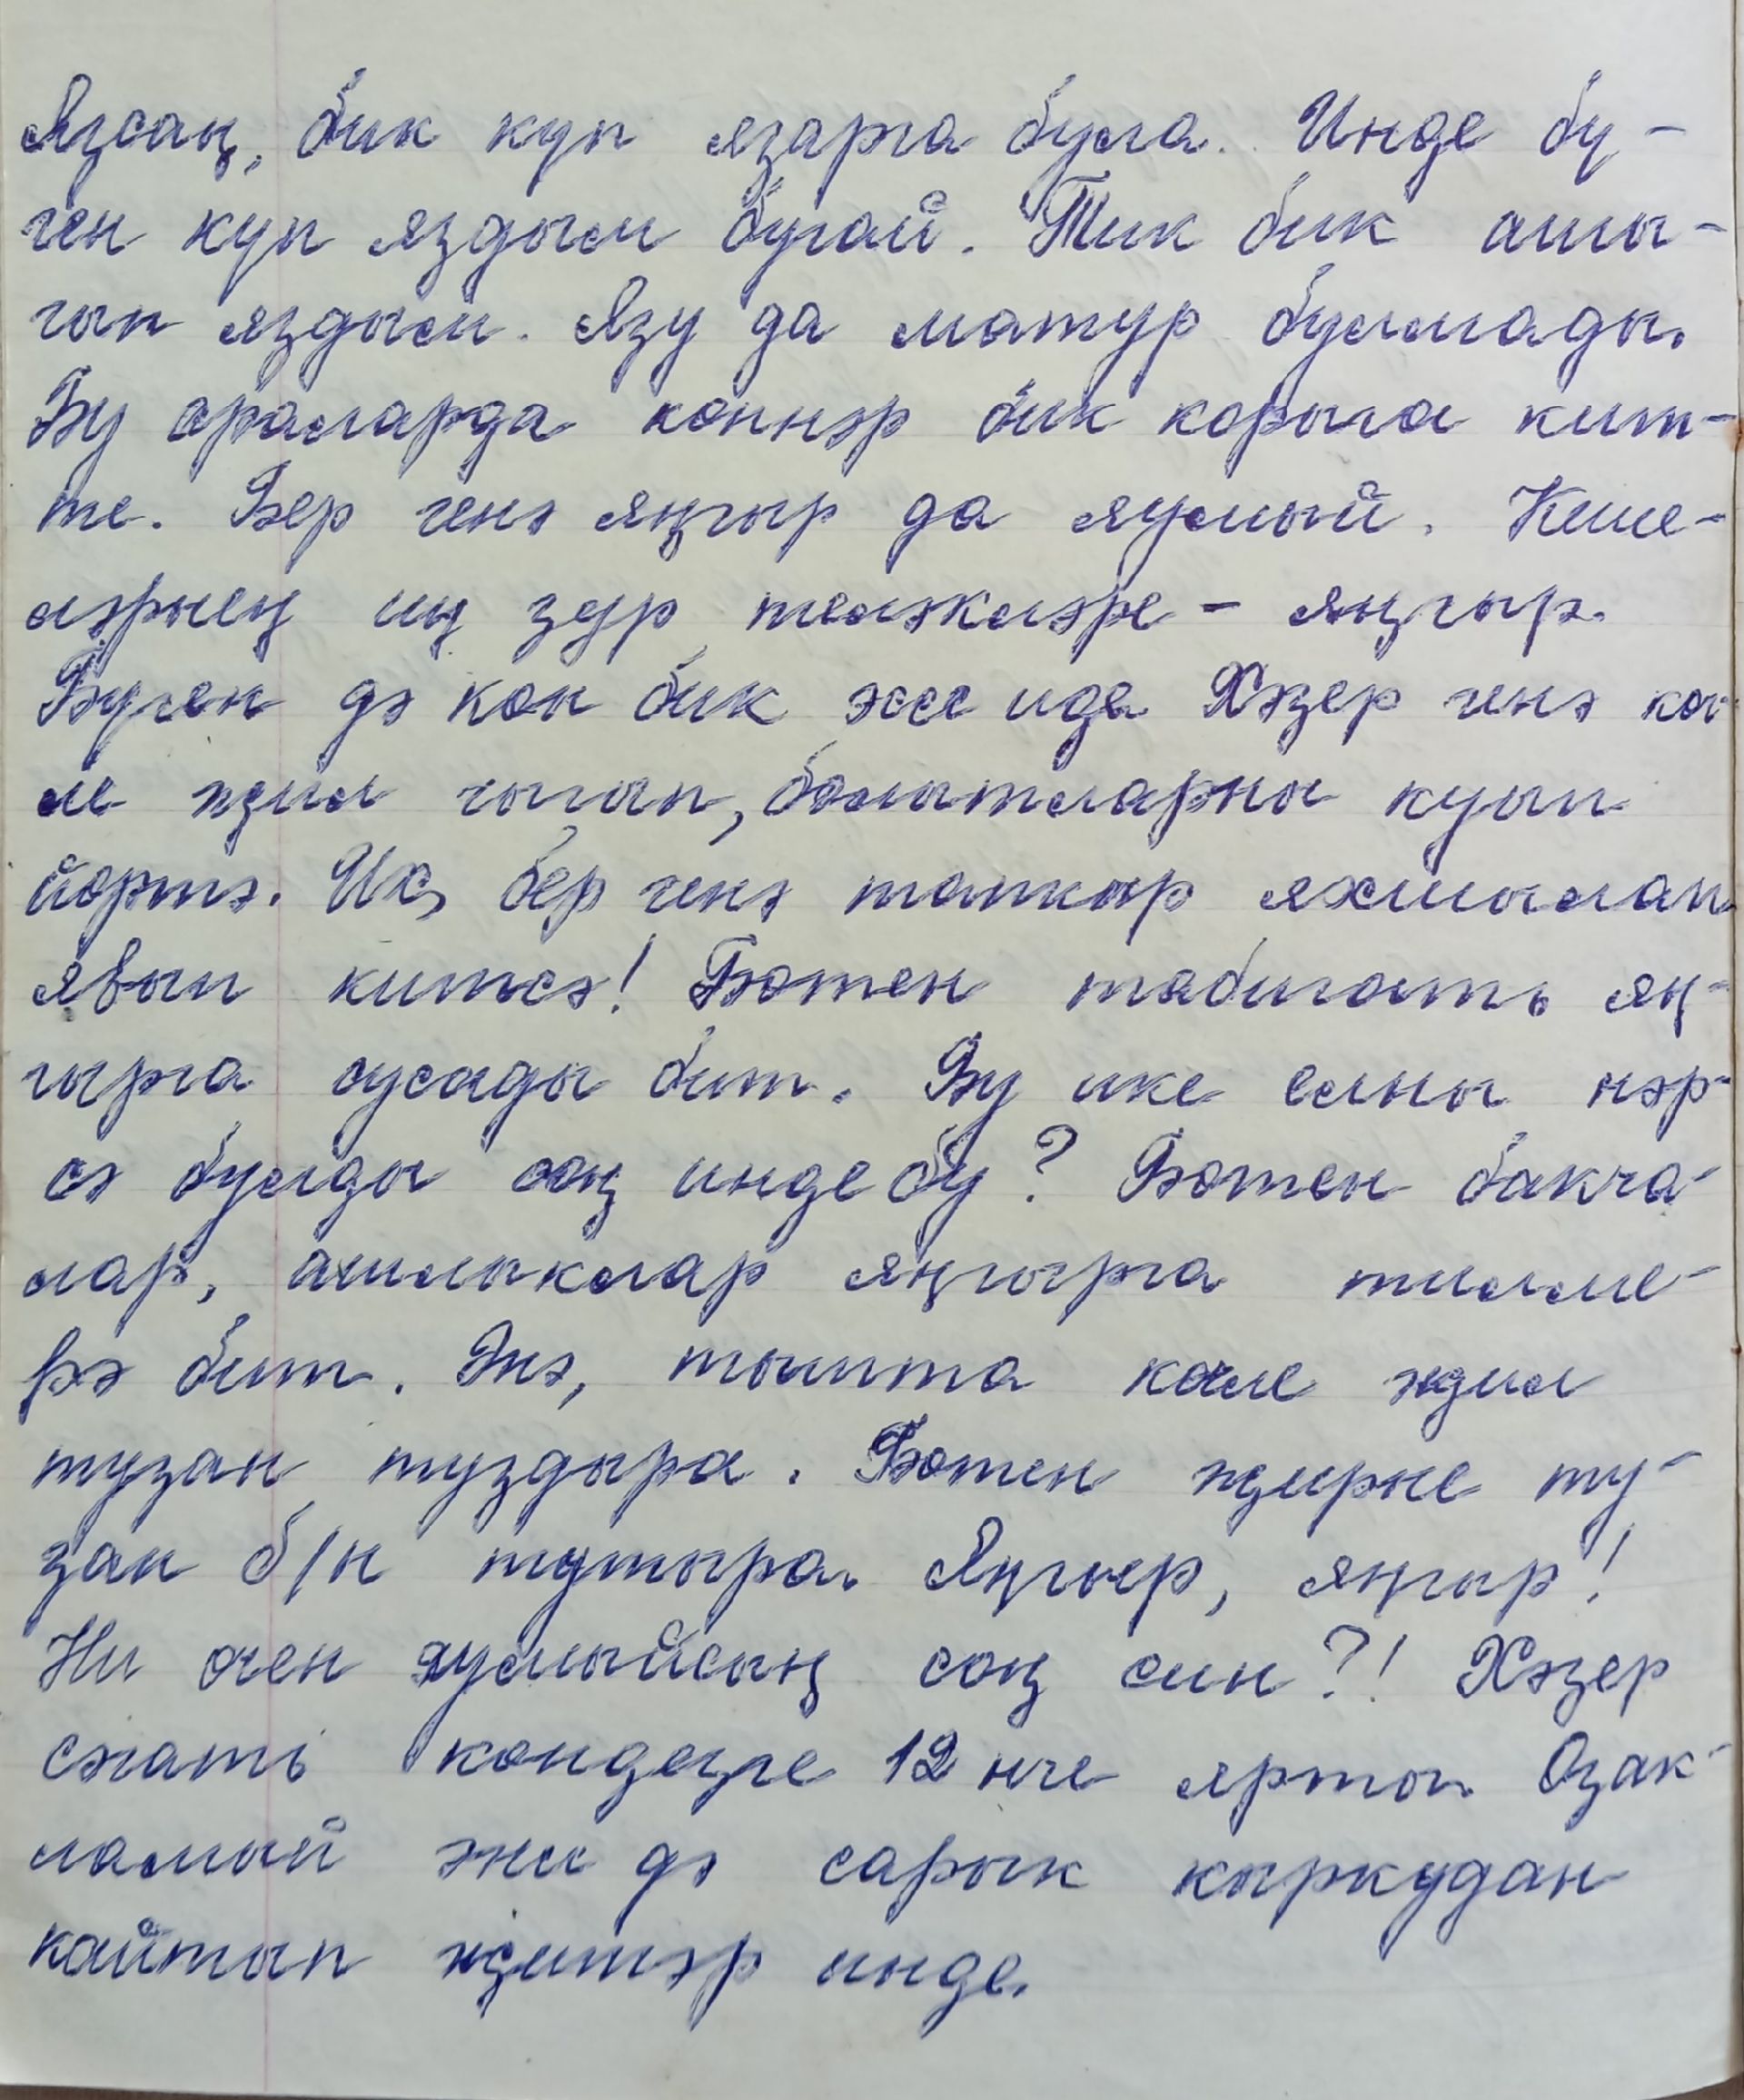 Язсаң, бик күп язарга була. Инде бү-
ген күп яздым бугай. Тик бик ашы-
гып яздым. Язу да матур булмады.
Бу араларда көннәр бик корыга кит-
те. Бер генә яңгыр да яумый. Кеше-
ләрнең иң зур теләкләре - яңгыр.
Бүген дә көн бик эссе иде. Хәзер генә көч
ле җил чыгып, болытларны куып
йөртә. Их, бер генә тапкыр яхшылап
явып китсә! Бөтен табигать яң-
гырга сусады бит. Бу ике елны нәр-
сә булды соң инде бу? Бөтен бакча-
лар, ашлыклар яңгырга тилме-
рә бит. Әнә, тышта көчле җил
тузан туздыра. Бөтен җирне ту-
зан б/н тутыра. Яңгыр, яңгыр!
Ни өчен яумыйсың соң син?! Хәзер
сәгать көндезге 12 нче ярты. Озак-
ламый әни дә сарык кыркудан
кайтып җитәр инде.